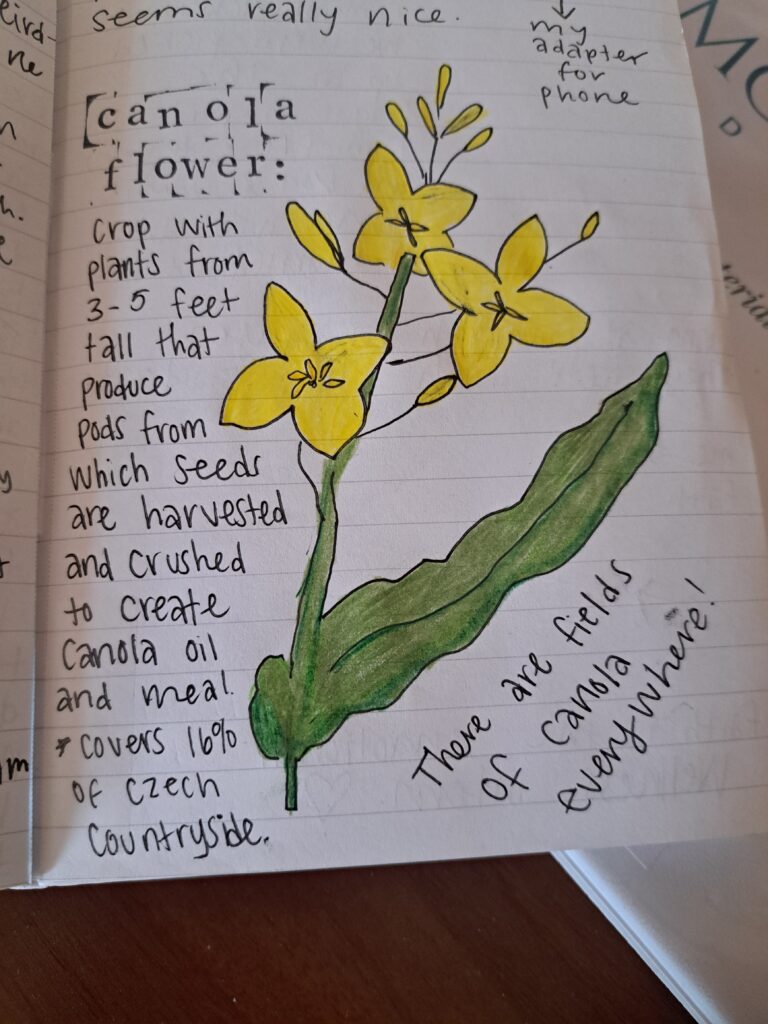 seems really nice.
my
adapter
for
phone
canola
flower:
crop with
plants from
3-5 feet
tall that
produce
pods from
which seeds
are harvested
and crushed
to create
canola oil
and meal.
* covers 16%
of czech
countryside.
There are fields
of canola
everywhere!